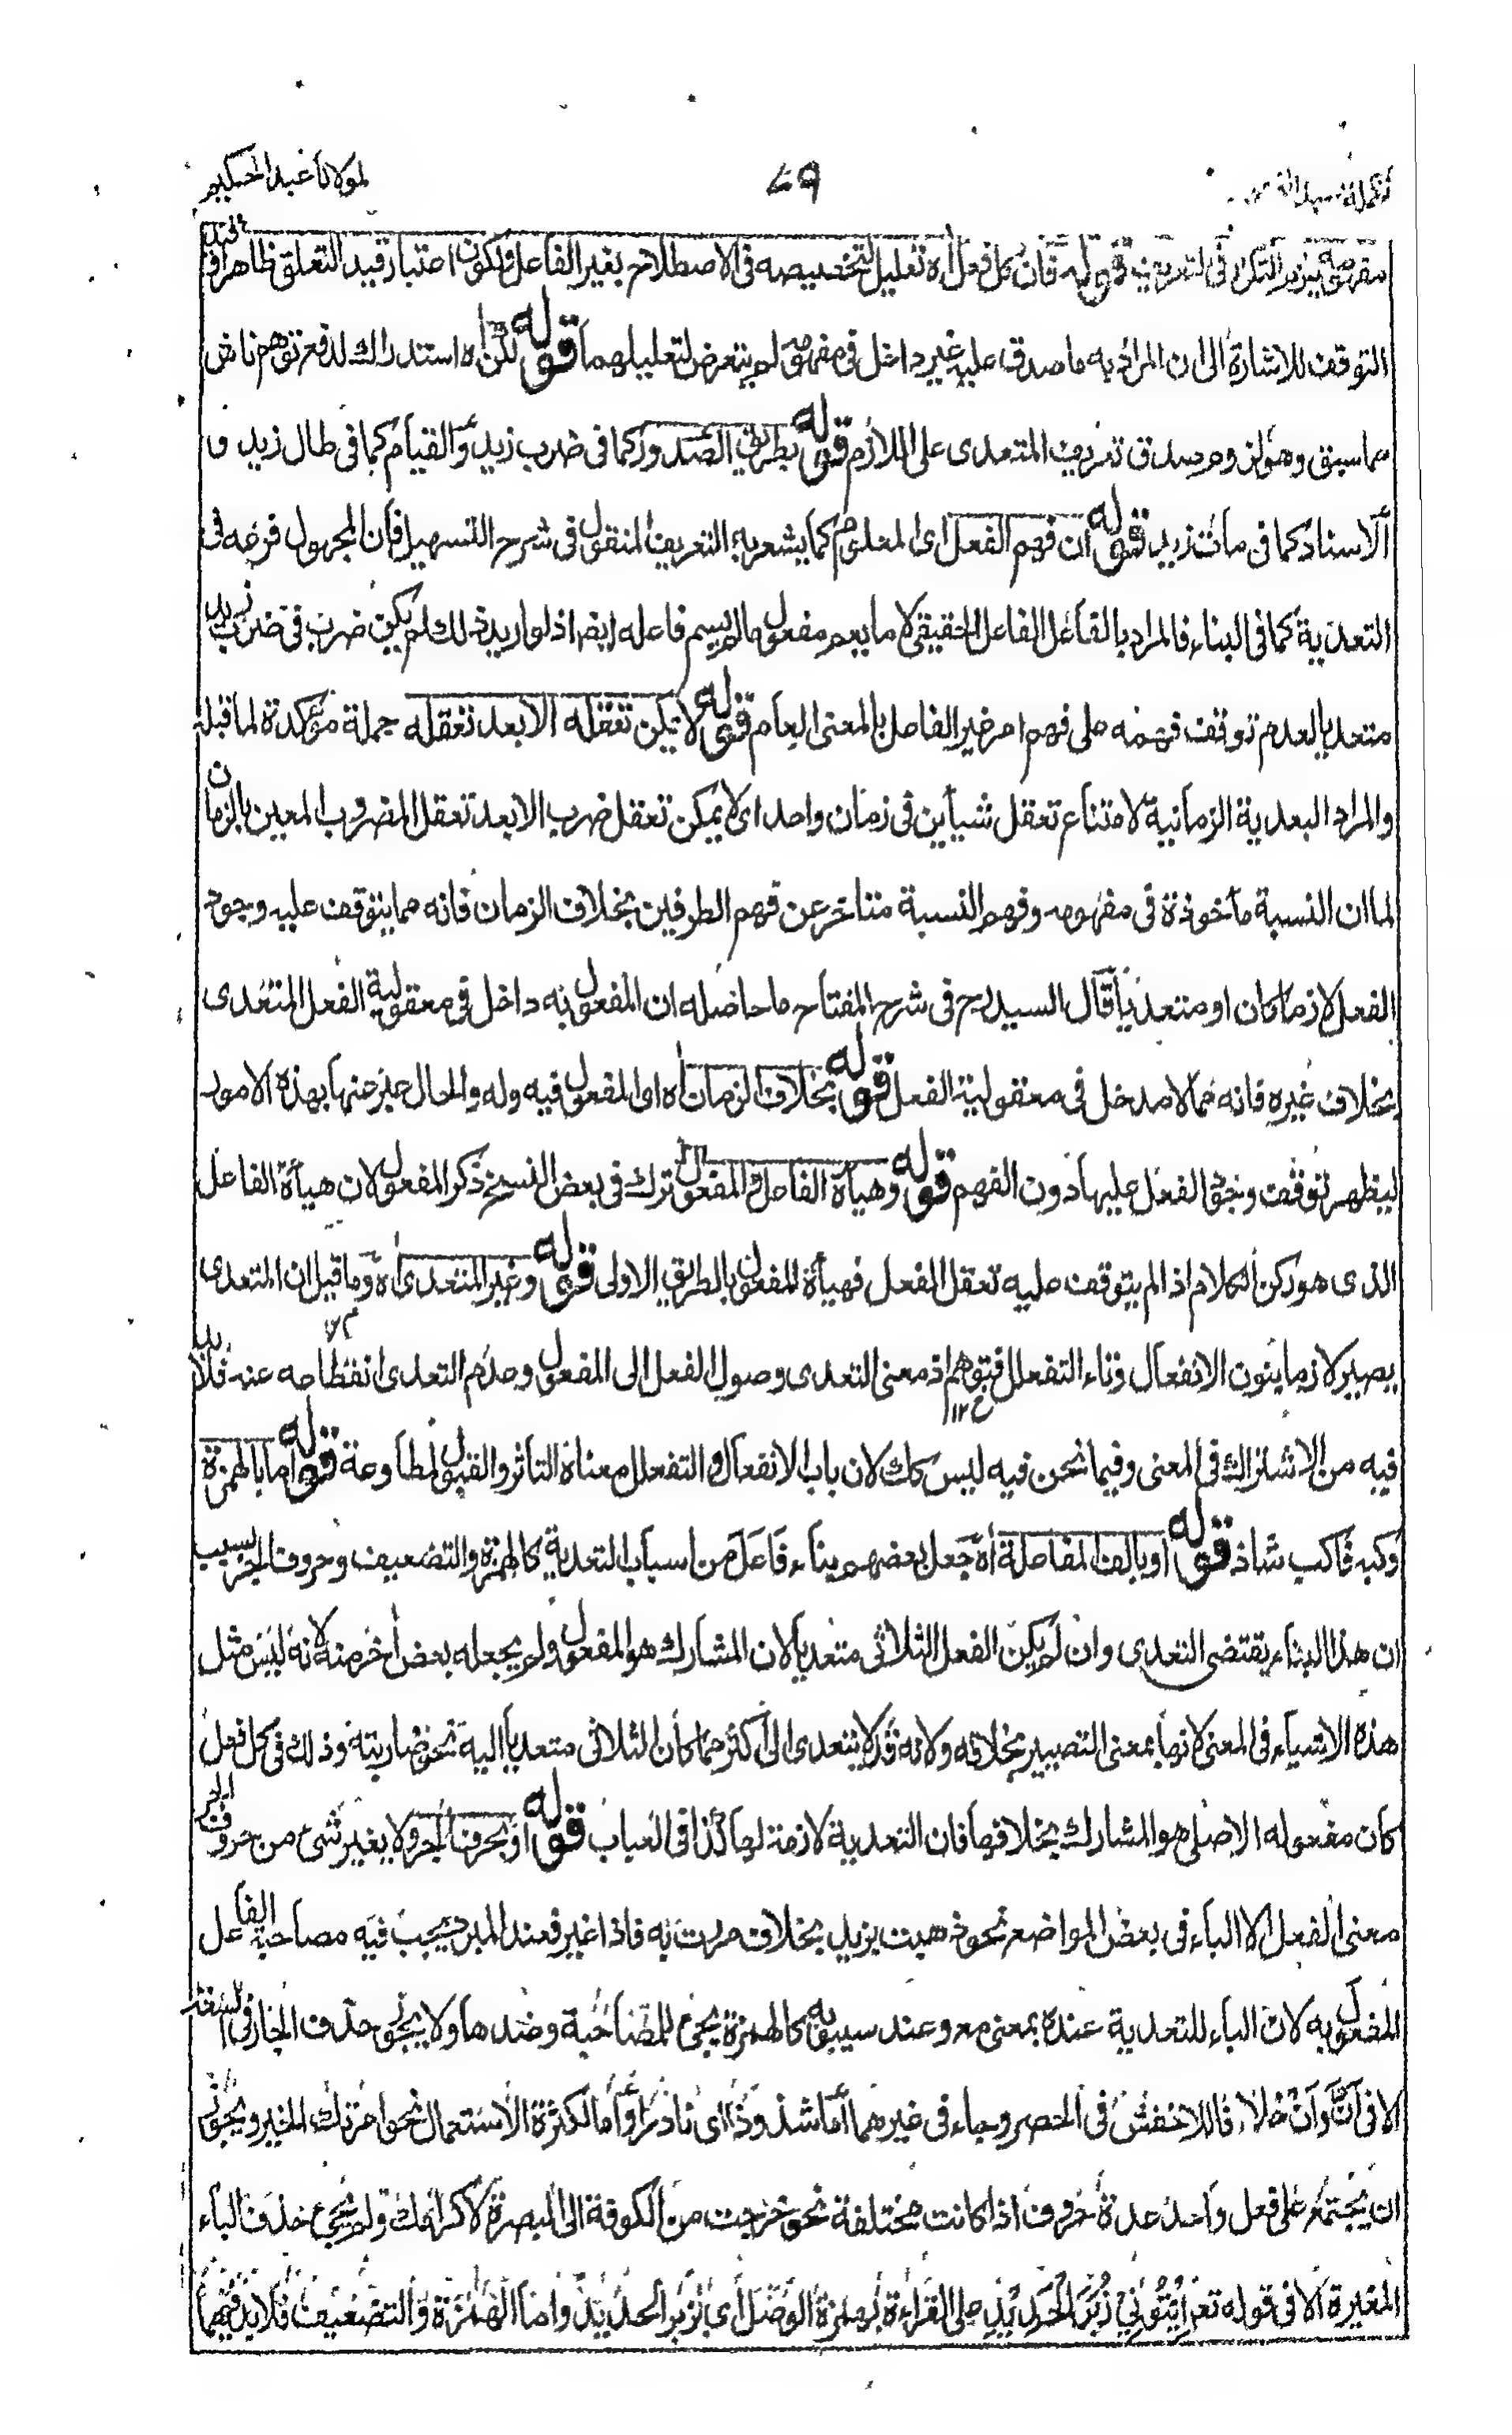 تكملة عبد الغفور ٧٩ لمولانا عبد الحكيم
مفهومه يلزم التكرار فى التعريف قوله فان كل فعل اه تعليل لتخصيصه فى الاصطلاح بغير الفاعل ولكون اعتبار قيد التعلق ظاهرا فى قيد
التوقف للاشارة الى ان المراد به ما صدق عليه غير داخل فى مفهومه لم يتعرض لتعليلهما قوله لكن اه استدراك لدفع توهم ناش
مما سبق وهو لزوم صدق تعريف المتعدى على اللازم قوله بطريق الصدور كما فى ضرب زيد والقيام كما فى طال زيد و
الاسناد كما فى مات زيد قوله ان فهم الفعل اى المعلوم كما يشعر به التعريف المنقول فى شرح التسهيل فان المجهول فرعه فى
التعدية كما فى البناء فالمراد بالفاعل الفاعل الحقيقى لا ما يعم مفعول ما لم يسم فاعله ايضا اذ لو اريد ذلك لم يكن ضرب فى ضرب زيد
متعديا لعدم توقف فهمه على فهم امر غير الفاعل بالمعنى العام قوله لا يمكن تعقله الا بعد تعقله جملة مؤكدة لما قبله
والمراد البعدية الزمانية لامتناع تعقل شيأين فى زمان واحد اى لا يمكن تعقل ضرب الا بعد تعقل المضروب المعين بالزمان
لما ان النسبة مأخوذة فى مفهومه وفهم النسبة متاخر عن فهم الطرفين بخلاف الزمان فانه مما يتوقف عليه وجود
الفعل لازما كان او متعديا قال السيد رح فى شرح المفتاح ما حاصله ان المفعول به داخل فى معقولية الفعل المتعدى
بخلاف غيره فانه مما لا مدخل فى معقولية الفعل قوله بخلاف الزمان اه اى المفعول فيه وله والحال عبر عنها بهذه الامور
ليظهر توقف وجود الفعل عليها دون الفهم قوله وهيأة الفاعل والمفعول ترك فى بعض النسخ ذكر المفعول لان هيأة الفاعل
الذى هو ركن الكلام اذا لم يتوقف عليه تعقل الفعل فهيأة المفعول بالطريق الاولى قوله وغير المتعدى اه وما قيل ان المتعدى
يصير لازما بنون الانفعال وتاء التفعلل فتوهم اذ معنى التعدى وصول الفعل الى المفعول وعدم التعدى انقطاعه عنه فلا بد
فيه من الاشتراك فى المعنى وفيما نحن فيه ليس كك لان باب الانفعال والتفعلل معناه التأثر والقبول لمطاوعة قوله اما بالهمزة
وكبه فاكب شاذ قوله او بالف المفاعلة اه جعل بعضهم بناء فاعل من اسباب التعدية كالهمزة والتضعيف وحروف الجر بسبب
ان هذا البناء يقتضى التعدى وان لم يكن الفعل الثلاثى متعديا لان المشارك هو المفعول ولم يجعله بعض آخر منه لانه ليس مثل
هذه الاشياء فى المعنى لانها بمعنى التصيير بخلافه ولانه قد لا يتعدى الى اكثر مما كان الثلاثى متعديا اليه نحو ضاربته وذلك فى كل فعل
كان مفعوله الاصلى هو المشارك بخلافها فان التعدية لازمة لها كذا فى العباب قوله او بحرف الجر ولا يغير شئ من حروف الجر
معنى الفعل الا الباء فى بعض المواضع نحو ذهبت بزيد بخلاف مررت به فاذا غير فعند المبرد يجب فيه مصاحبة الفاعل
المفعول به لان الباء للتعدية عنده بمعنى مع وعند سيبويه كالهمزة يجئ للمصاحبة وضدها ولا يجوز حذف الجار فى السعة
الا فى أنّ وأنْ خلافا للاخفش فى الحصر وجاء فى غيرهما اما شذوذا اى نادرا واما لكثرة الاستعمال نحو امرتك الخير ويجوز
ان يجتمع على فعل واحد عدة حروف اذا كانت مختلفة نحو خرجت من الكوفة الى البصرة لاكرامك ولم يجئ حذف الباء
المغيرة الا فى قوله تعا ايْتُوْنِيْ زُبَرَ الْحَدِيْدِ على القراءة بهمزة الوصل اى بزبر الحديد واما الهمزة والتضعيف فلا بد فيهما